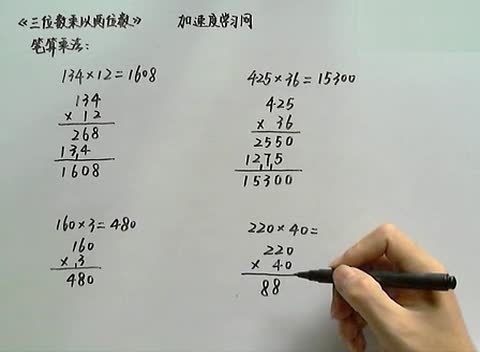 《三位数乘以两位数》 加速度学习网
笔算乘法:
134×12=1608
134
×12
268
134
1608
425×36=15300
425
×36
2550
1275
15300
160×3=480
160
×3
480
220×40=
220
×40
88